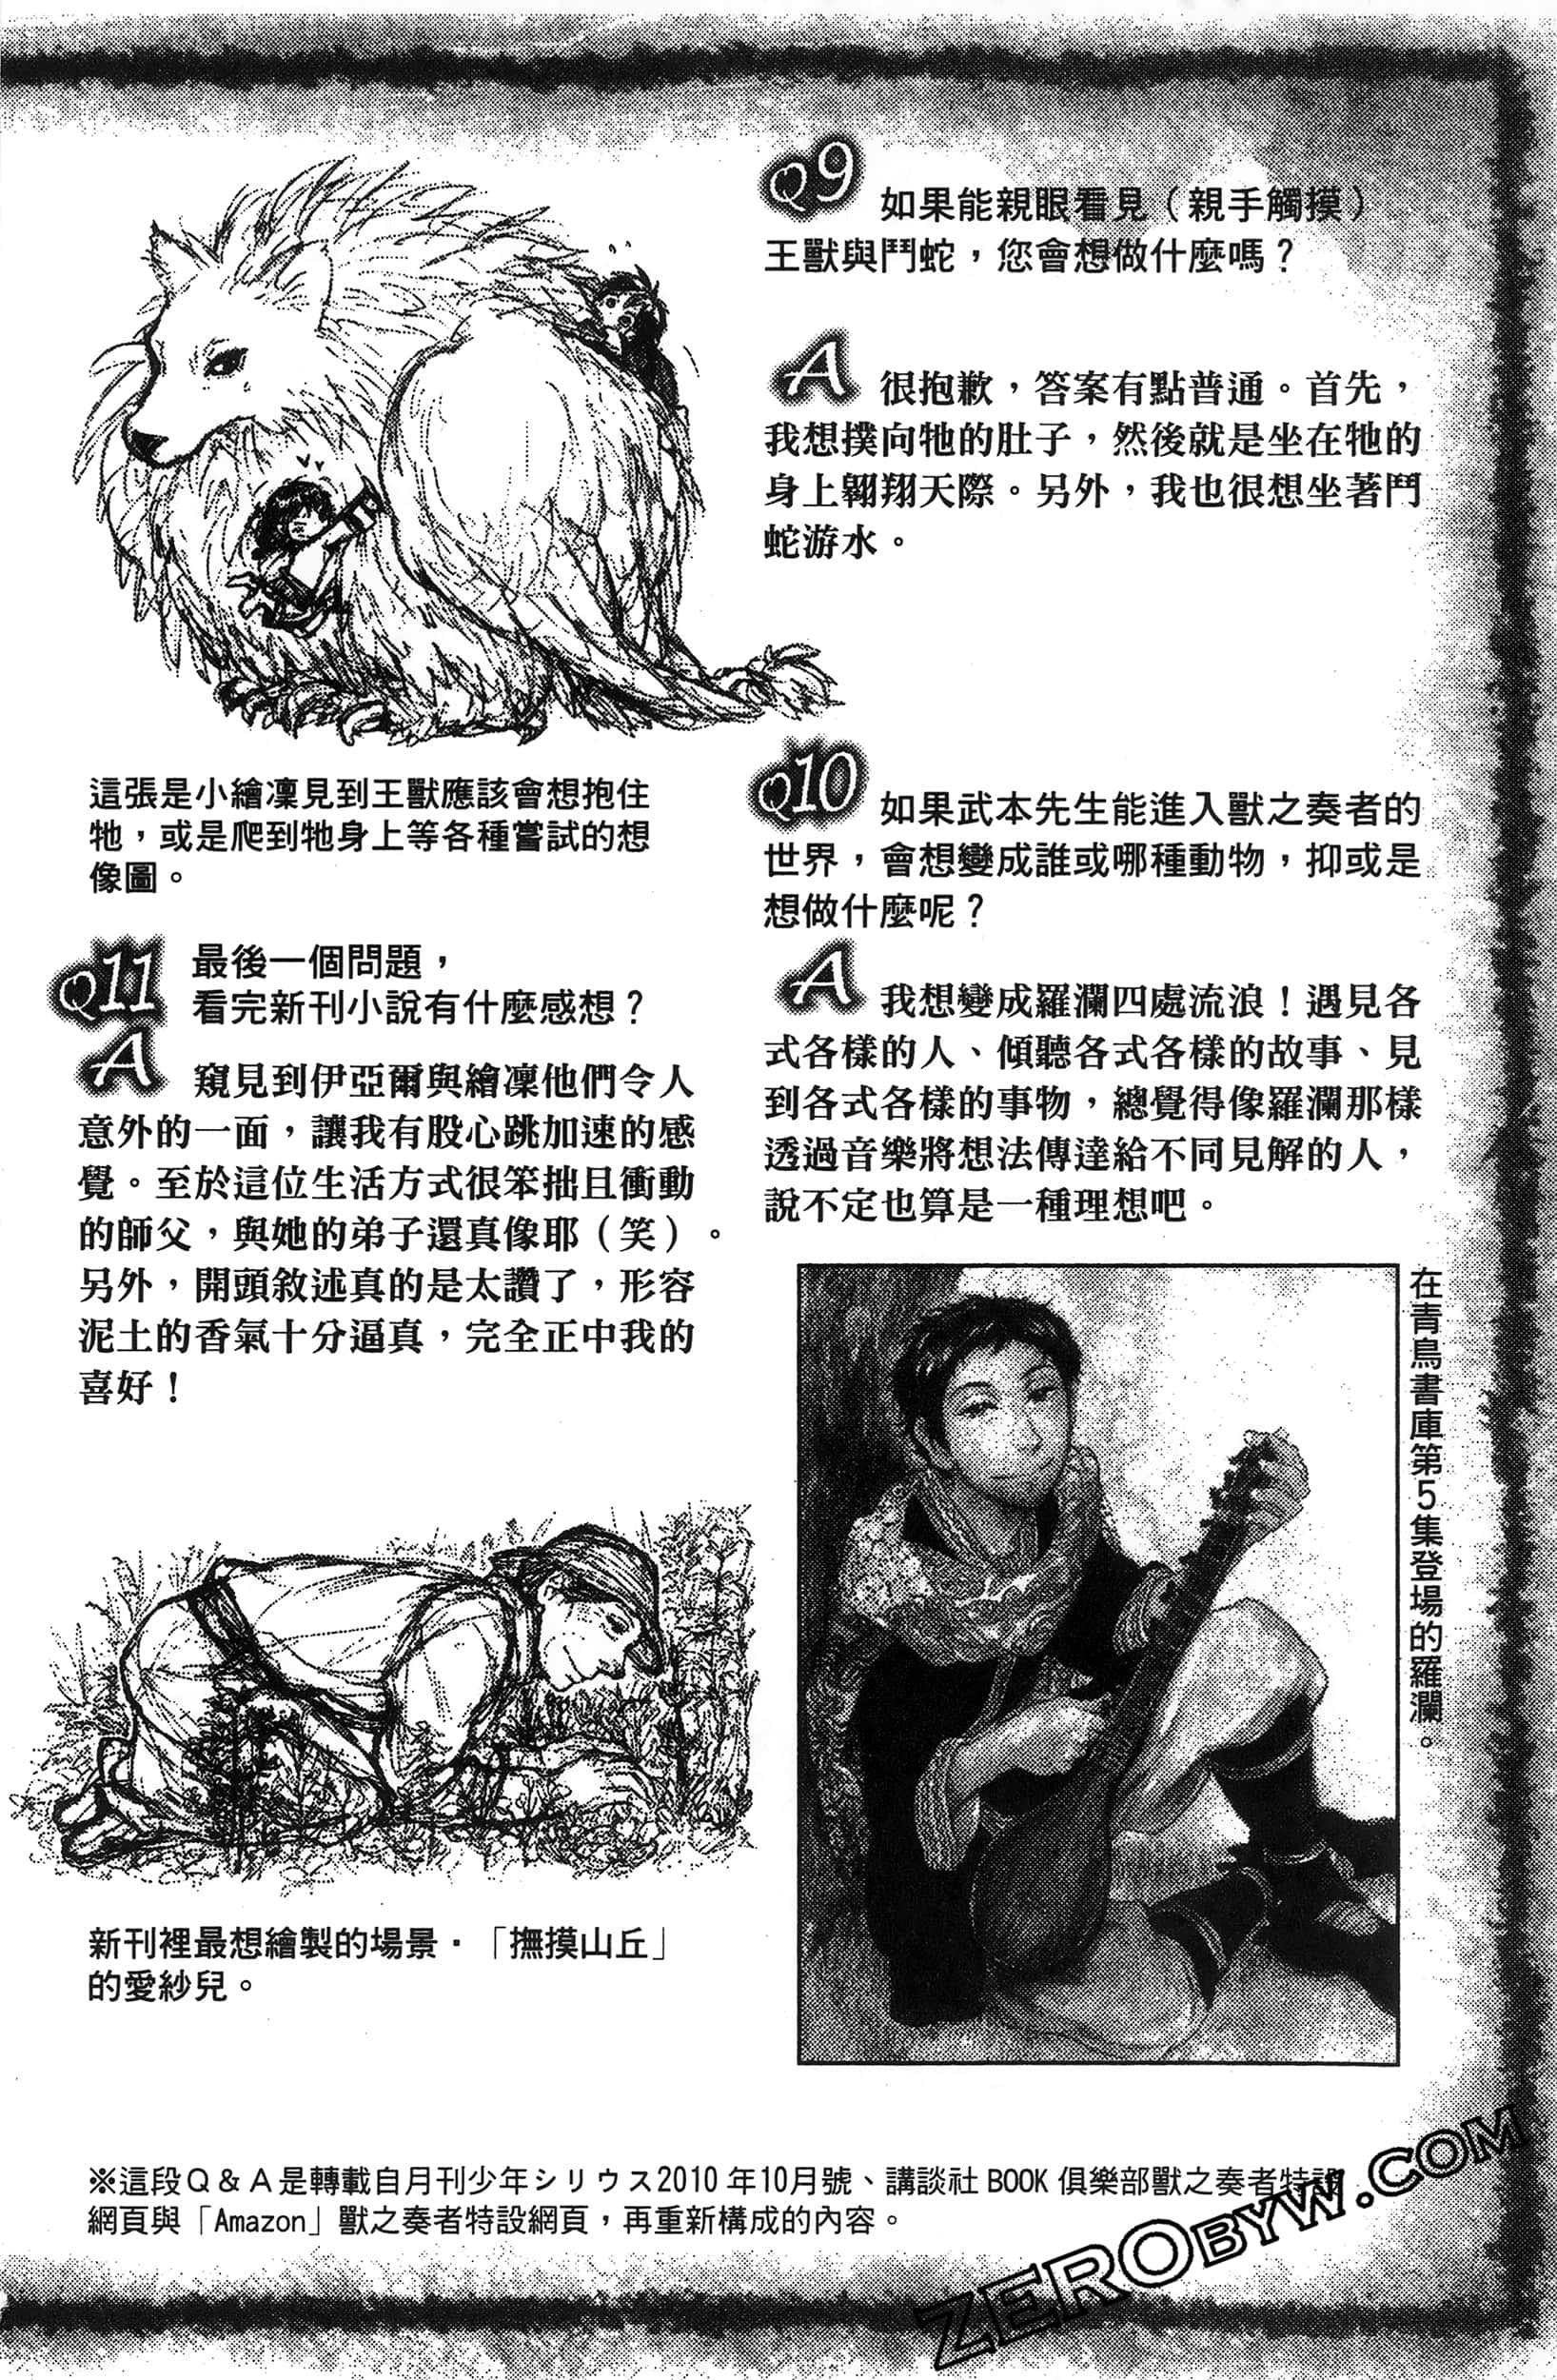 Q9 如果能親眼看見（親手觸摸）
王獸與鬥蛇，您會想做什麼嗎？
A 很抱歉，答案有點普通。首先，
我想撲向牠的肚子，然後就是坐在牠的
身上翱翔天際。另外，我也很想坐著鬥
蛇游水。
Q10 如果武本先生能進入獸之奏者的
世界，會想變成誰或哪種動物，抑或是
想做什麼呢？
A 我想變成羅瀾四處流浪！遇見各
式各樣的人、傾聽各式各樣的故事、見
到各式各樣的事物，總覺得像羅瀾那樣
透過音樂將想法傳達給不同見解的人，
說不定也算是一種理想吧。
在青鳥書庫第5集登場的羅瀾。
這張是小繪凜見到王獸應該會想抱住
牠，或是爬到牠身上等各種嘗試的想
像圖。
Q11 最後一個問題，
看完新刊小說有什麼感想？
A 窺見到伊亞爾與繪凜他們令人
意外的一面，讓我有股心跳加速的感
覺。至於這位生活方式很笨拙且衝動
的師父，與她的弟子還真像耶（笑）。
另外，開頭敘述真的是太讚了，形容
泥土的香氣十分逼真，完全正中我的
喜好！
新刊裡最想繪製的場景・「撫摸山丘」
的愛紗兒。
※這段Q＆A是轉載自月刊少年シリウス2010年10月號、講談社BOOK俱樂部獸之奏者特設
網頁與「Amazon」獸之奏者特設網頁，再重新構成的內容。
ZEROBYW.COM